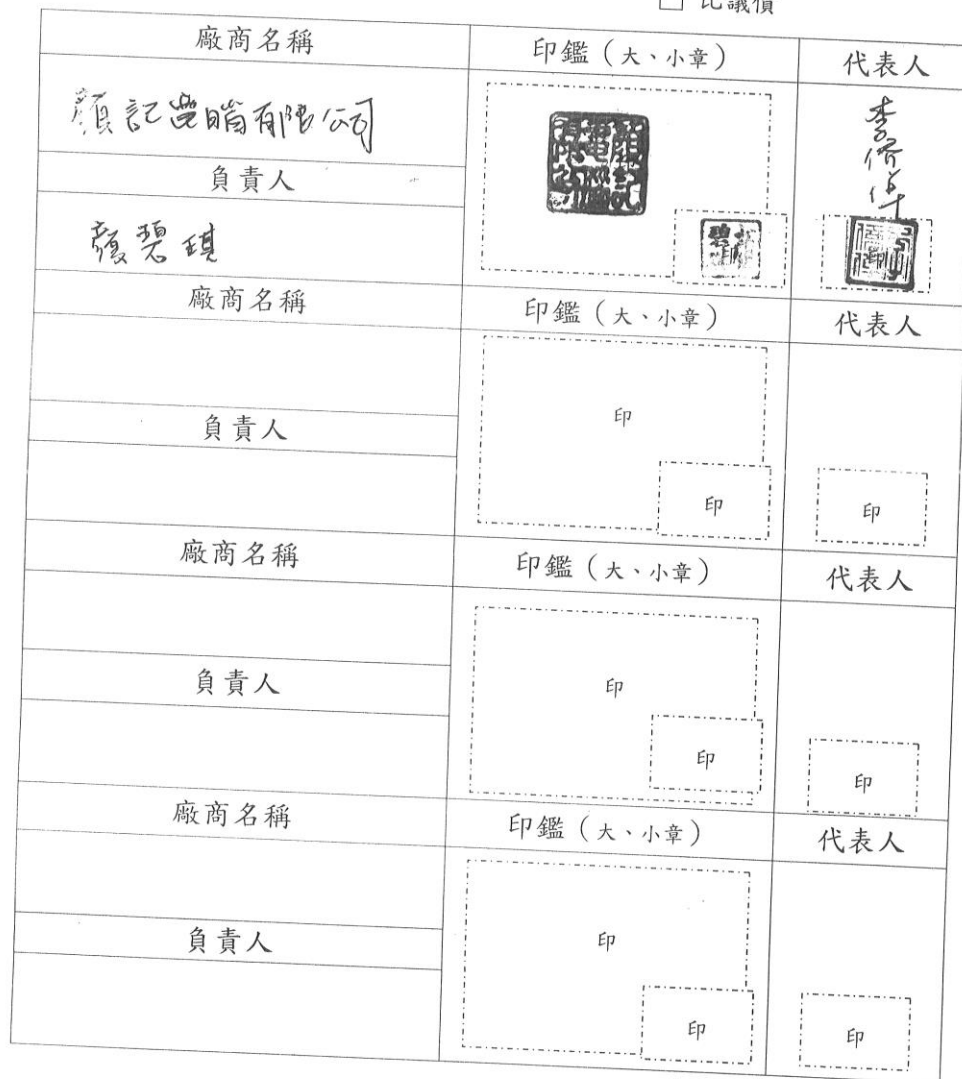 □ 比議價
廠商名稱 印鑑（大、小章） 代表人
顏記電腦有限公司
負責人
顏碧琪
廠商名稱 印鑑（大、小章） 代表人
印
負責人
印 印
廠商名稱 印鑑（大、小章） 代表人
印
負責人
印 印
廠商名稱 印鑑（大、小章） 代表人
印
負責人
印 印